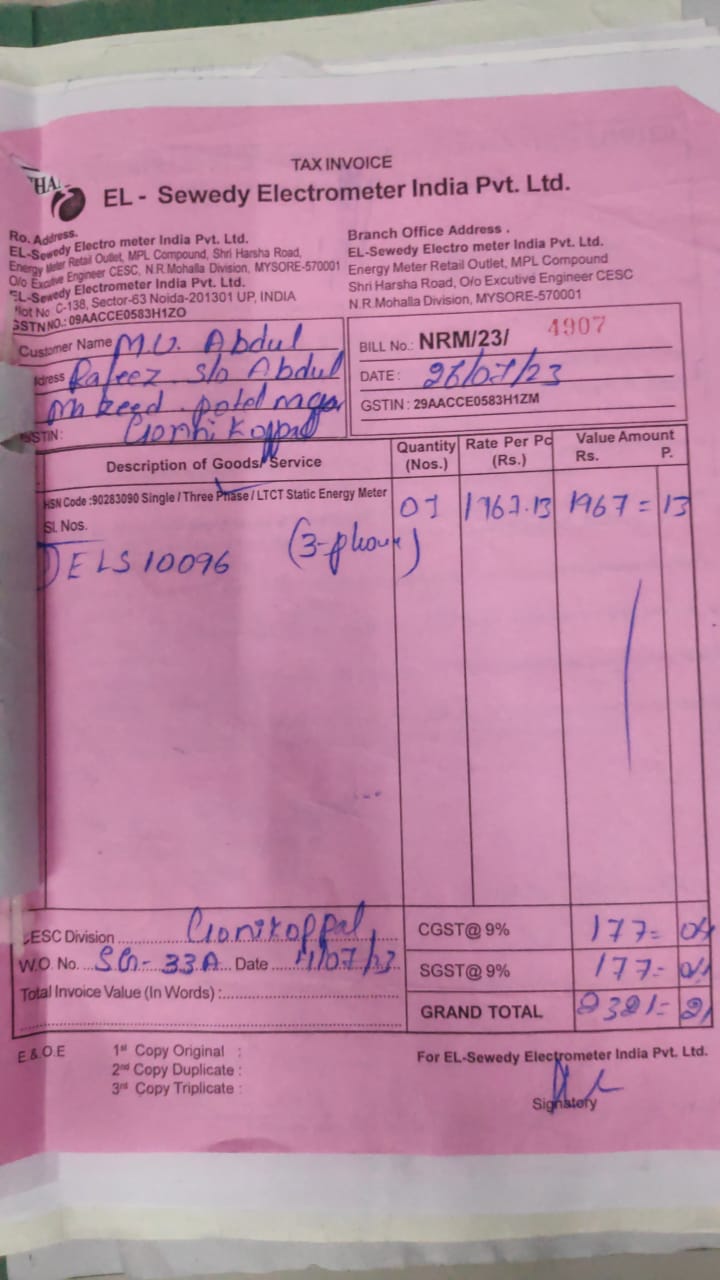 TAX INVOICE
EL - Sewedy Electrometer India Pvt. Ltd.
Ro. Address.
EL-Sewedy Electro meter India Pvt. Ltd.
Energy Meter Retail Outlet, MPL Compound, Shri Harsha Road,
O/o Excutive Engineer CESC, N.R.Mohalla Division, MYSORE-570001
EL-Sewedy Electrometer India Pvt. Ltd.
Plot No C-138, Sector-63 Noida-201301 UP, INDIA
GSTN NO.: 09AACCE0583H1ZO
Branch Office Address .
EL-Sewedy Electro meter India Pvt. Ltd.
Energy Meter Retail Outlet, MPL Compound
Shri Harsha Road, O/o Excutive Engineer CESC
N.R.Mohalla Division, MYSORE-570001
Customer Name M.U. Abdul
dress Rafeez s/o Abdul
GSTIN:
BILL No.: NRM/23/ 4907
DATE: 26/07/23
GSTIN : 29AACCE0583H1ZM
Description of Goods/ Service Quantity (Nos.) Rate Per Pc (Rs.) Value Amount Rs. P.
HSN Code :90283090 Single / Three Phase / LTCT Static Energy Meter 01 1967.13 1967 = 13
Sl. Nos.
1) ELS10096 (3-phase)
CESC Division Gonikoppal
W.O. No. SG-33A Date
Total Invoice Value (In Words) :
CGST@ 9% 177= 04
SGST@ 9% 177= 04
GRAND TOTAL 2321= 21
E & O.E
1st Copy Original :
2nd Copy Duplicate :
3rd Copy Triplicate :
For EL-Sewedy Electrometer India Pvt. Ltd.
Signatory